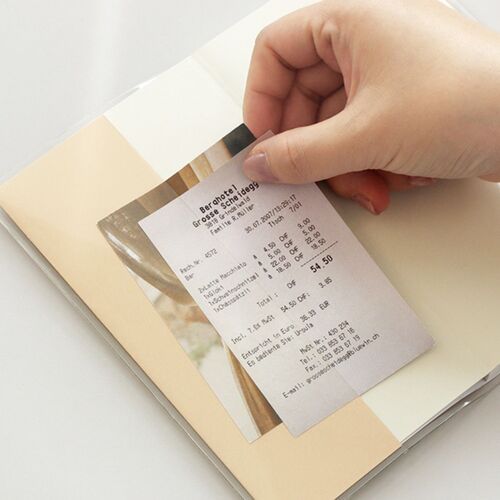 Berghotel
Grosse Scheidegg
3818 Grindelwald
Familie R.Müller
Rech.Nr. 4572 30.07.2007/13:29:17
Bar Tisch 7/01
2xLatte Macchiato à 4.50 CHF 9.00
1xGloki à 5.00 CHF 5.00
1xSchweinschnitzel à 22.00 CHF 22.00
1xChässpätzli à 18.50 CHF 18.50
Total : CHF 54.50
Incl. 7.6% MwSt 54.50 CHF: 3.85
Entspricht in Euro 36.33 EUR
Es bediente Sie: Ursula
MwSt Nr.: 430 234
Tel.: 033 853 67 16
Fax.: 033 853 67 19
E-mail: grossescheidegg@bluewin.ch